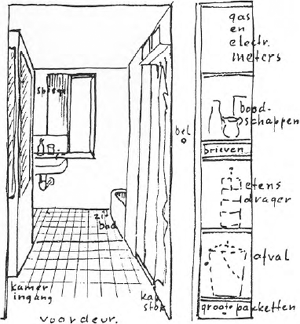 spiegel
zit
bad
kamer
ingang
kap
stok
voordeur.
bel
gas
en
electr.
meters
bood-
schappen
brieven
etens
drager
afval
groote pakketten